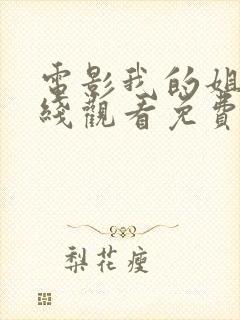 電影我的姐
綫觀看免費
梨花瘦